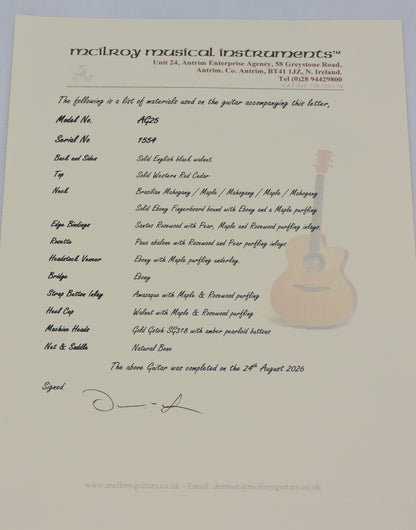 mcilroy musical instruments™
Unit 24, Antrim Enterprise Agency, 58 Greystone Road,
Antrim, Co. Antrim, BT41 1JZ, N. Ireland.
Tel (0)28 94429800
The following is a list of materials used on the guitar accompanying this letter,
Model No. AG25
Serial No 1554
Back and Sides Solid English black walnut.
Top Solid Western Red Cedar
Neck Brazilian Mahogany / Maple / Mahogany / Maple / Mahogany
Solid Ebony Fingerboard bound with Ebony and a Maple purfling.
Edge Bindings Santos Rosewood with Pear, Maple and Rosewood purfling inlays.
Rosette Paua abalone with Rosewood and Pear purfling inlays
Headstock Veneer Ebony with Maple purfling underlay.
Bridge Ebony
Strap Button Inlay Amazaque with Maple & Rosewood purfling
Heel Cap Walnut with Maple & Rosewood purfling
Machine Heads Gold Gotoh SG318 with amber pearloid buttons
Nut & Saddle Natural Bone
The above Guitar was completed on the 24th August 2026
Signed
www.mcilroyguitars.co.uk - Email: dermot@mcilroyguitars.co.uk